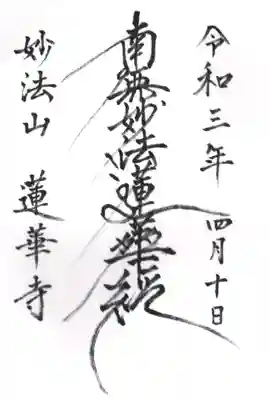 令和三年 四月十日
南無妙法蓮華経
妙法山 蓮華寺